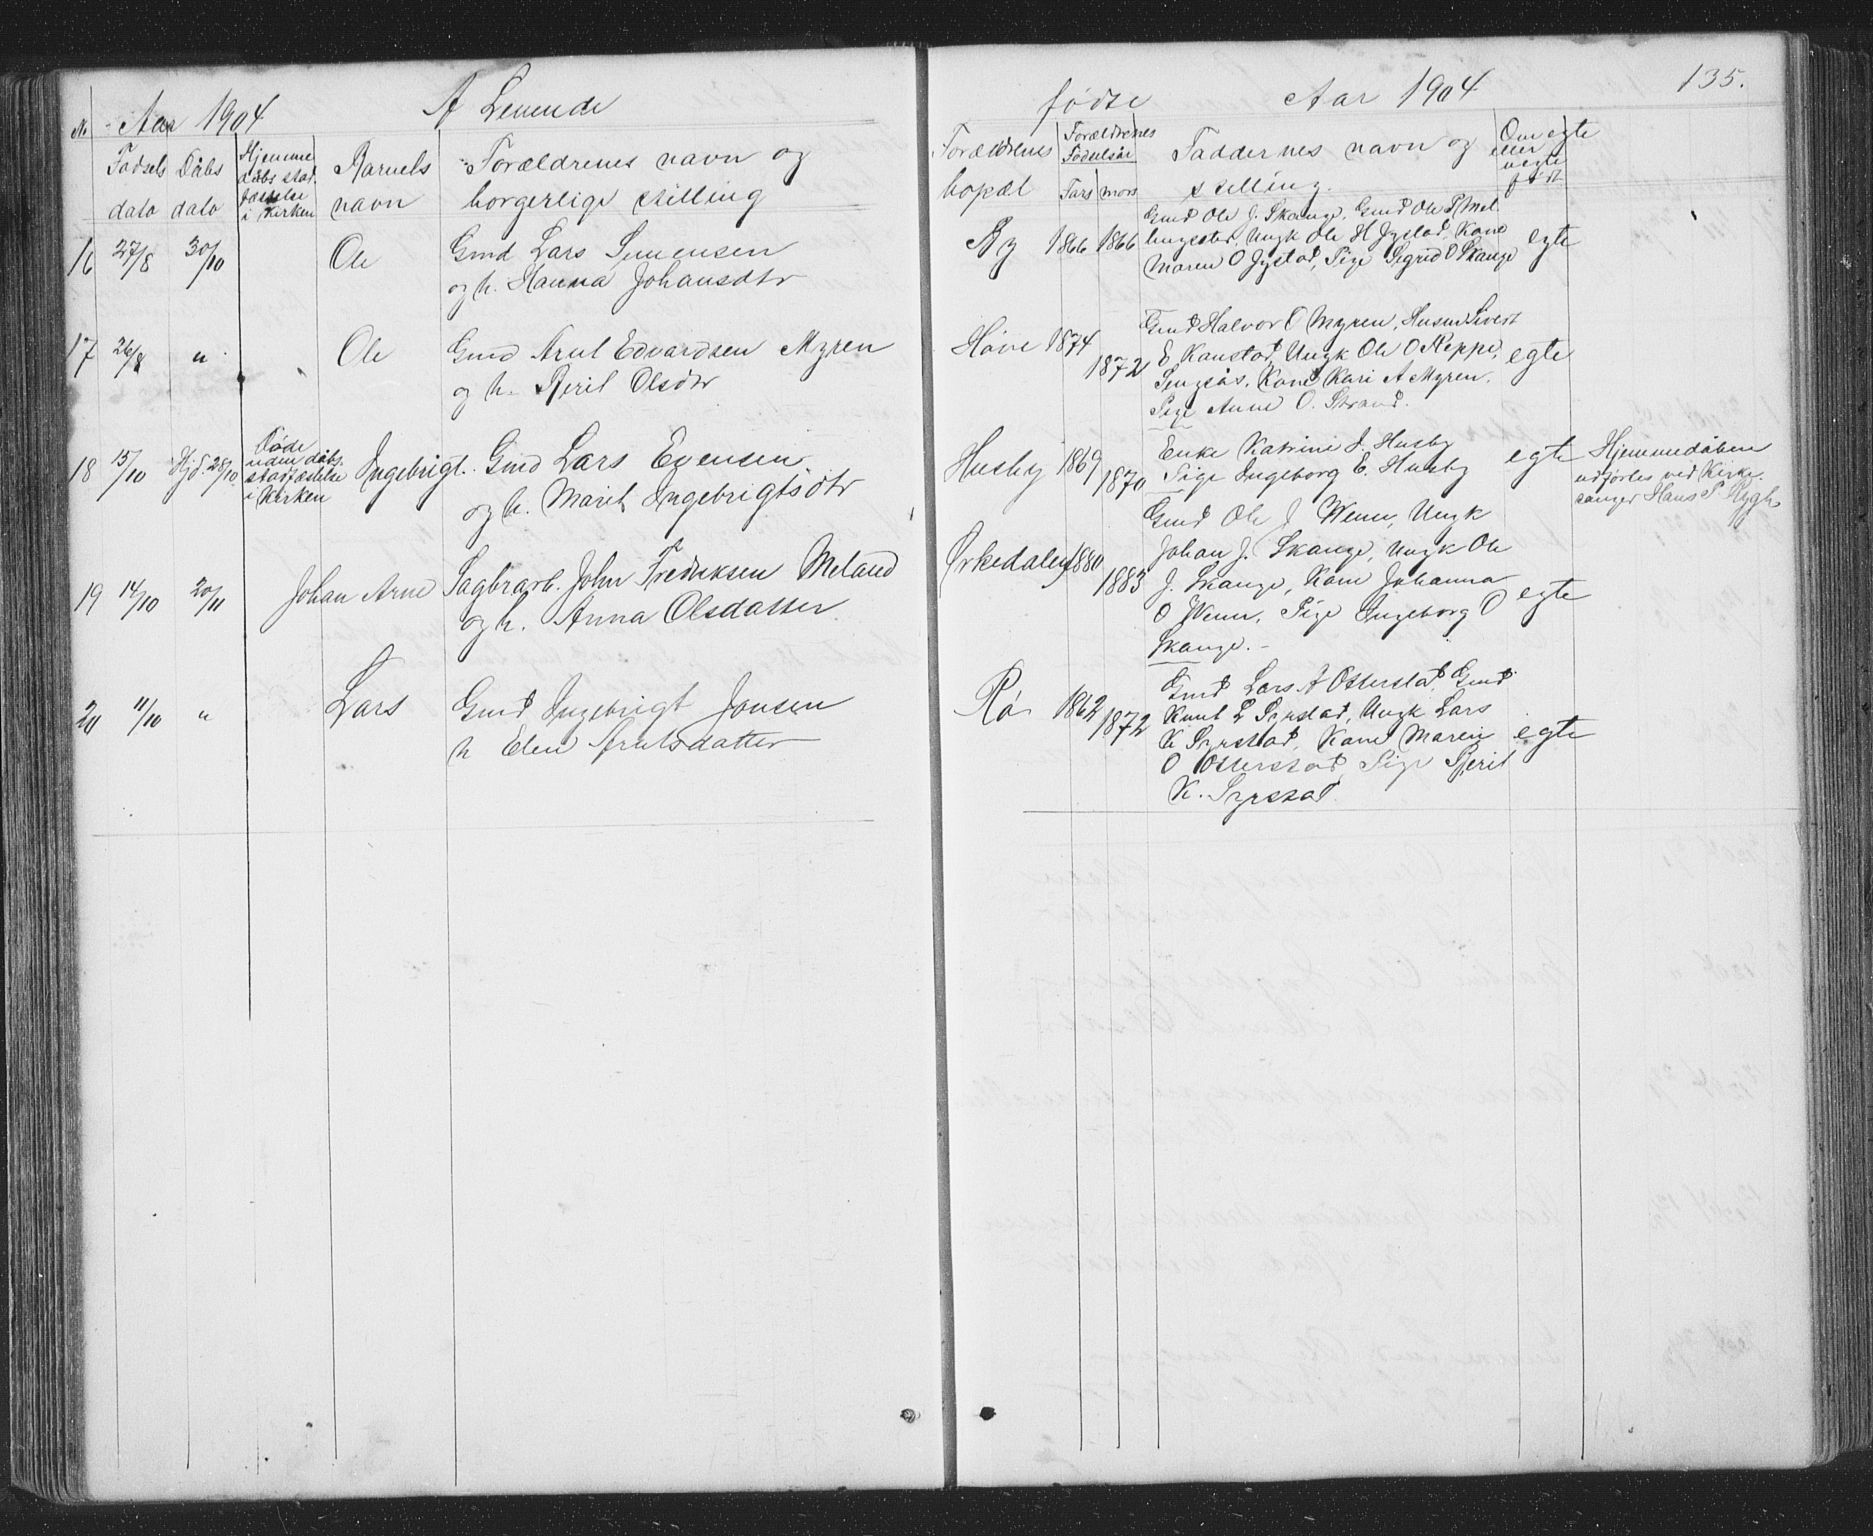 Aar 1904 A Levende
No
Fødsels dato
Dåbs dato
Hjemme
dåbs stad.
fæstelse
i Kirken
Barnets
navn
Forældrenes navn og
borgerlige stilling
16 27/8 30/10 Ole
Gmd Lars Simensen
og h. Hanna Johansdtr
17 26/8 " Ole
Gmd Arnt Edvardsen Myren
og h. Berit Olsdtr
18 15/10 Hjd. 28/10
Døde
uden dåbs.
stadfæstelse
i Kirken
Ingebrigt.
Gmd Lars Evensen
og h. Marit Ingebrigtsdtr
19 14/10 20/11 Johan Arne
Sagbrarb. John Fredriksen Meland
og h. Anna Olsdatter
20 11/10 " Lars
Gmd Ingebrigt Jonsen
h Elen Arntsdatter
fødte Aar 1904 135.
Forældrenes
bopæl
Forældrenes
Fødselsår
Fars mors
Faddernes navn og
stilling.
Om egte
eller
uegte
født
By 1866 1866
Gmd Ole J. Skauge, Gmd Ole P Mel
lingseter, Ungk Ole H Jystad, Kone
Maren O Jystad, Pige Sigrid O Skauge
egte
Høve 1874
1872
Gmd Halvor O Myren, Husm Sivert
E Kanstad, Ungk Ole O Reppe,
Sengsås, Kone Kari A Myren,
Pige Anne O. Strand.
egte
Husby 1869
1870
Enke Katrine J. Husby
Pige Ingeborg E. Husby
egte
Hjemmedåben
udførtes ved Kirke
sanger Hans P Rygh
Ørkedalen 1880
1883
Gmd Ole J Wenn, Ungk
Johan J. Skauge, Ungk Ole
J. Skauge, Kone Johanna
O Wenn, Pige Ingeborg O
Skauge.
egte
Rø 1862
1872
Gmd Lars A Osterstad, Gmd
Knut L Syrstad, Ungk Lars
K Syrstad, Kone Maren
O Osterstad, Pige Berit
K. Syrstad.
egte